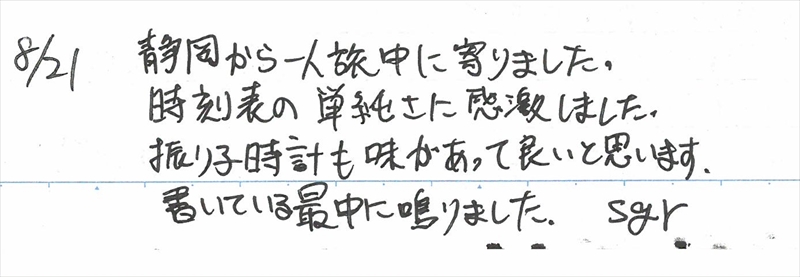 8/21 静岡から一人旅中に寄りました。
時刻表の単純さに感激しました。
振り子時計も味があって良いと思います.
書いている最中に鳴りました. sgr